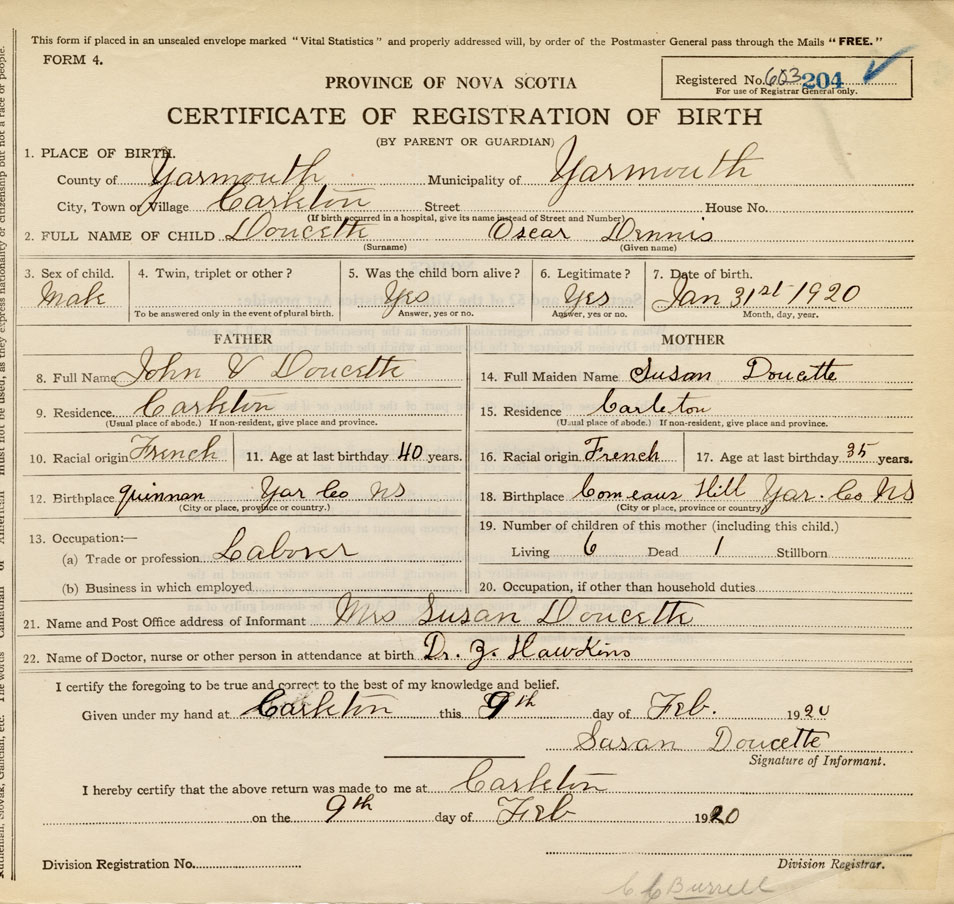 This form if placed in an unsealed envelope marked "Vital Statistics" and properly addressed will, by order of the Postmaster General pass through the Mails "FREE."
FORM 4.
PROVINCE OF NOVA SCOTIA
Registered No. 603 204
For use of Registrar General only.
CERTIFICATE OF REGISTRATION OF BIRTH
(BY PARENT OR GUARDIAN)
1. PLACE OF BIRTH.
County of Yarmouth Municipality of Yarmouth
City, Town or Village Carleton Street House No.
(If birth occurred in a hospital, give its name instead of Street and Number)
2. FULL NAME OF CHILD Doucette Oscar Dennis
(Surname) (Given name)
3. Sex of child. 4. Twin, triplet or other? 5. Was the child born alive? 6. Legitimate? 7. Date of birth.
Male Yes Yes Jan 31st 1920
To be answered only in the event of plural birth. Answer, yes or no. Answer, yes or no. Month, day, year.
FATHER
8. Full Name John V Doucette
9. Residence. Carleton
(Usual place of abode.) If non-resident, give place and province.
10. Racial origin French 11. Age at last birthday 40 years.
12. Birthplace quinnan Yar Co NS
(City or place, province or country.)
13. Occupation:—
(a) Trade or profession Laborer
(b) Business in which employed
MOTHER
14. Full Maiden Name Susan Doucette
15. Residence Carleton
(Usual place of abode.) If non-resident, give place and province.
16. Racial origin French 17. Age at last birthday 35 years.
18. Birthplace Comeaus Hill Yar. Co NS
(City or place, province or country)
19. Number of children of this mother (including this child.)
Living 6 Dead 1 Stillborn
20. Occupation, if other than household duties
21. Name and Post Office address of Informant Mrs Susan Doucette
22. Name of Doctor, nurse or other person in attendance at birth Dr. Z. Hawkins
I certify the foregoing to be true and correct to the best of my knowledge and belief.
Given under my hand at Carleton this 9th day of Feb. 1920
Susan Doucette
Signature of Informant.
I hereby certify that the above return was made to me at Carleton
on the 9th day of Feb 1920
Division Registration No. Division Registrar.
Burrell